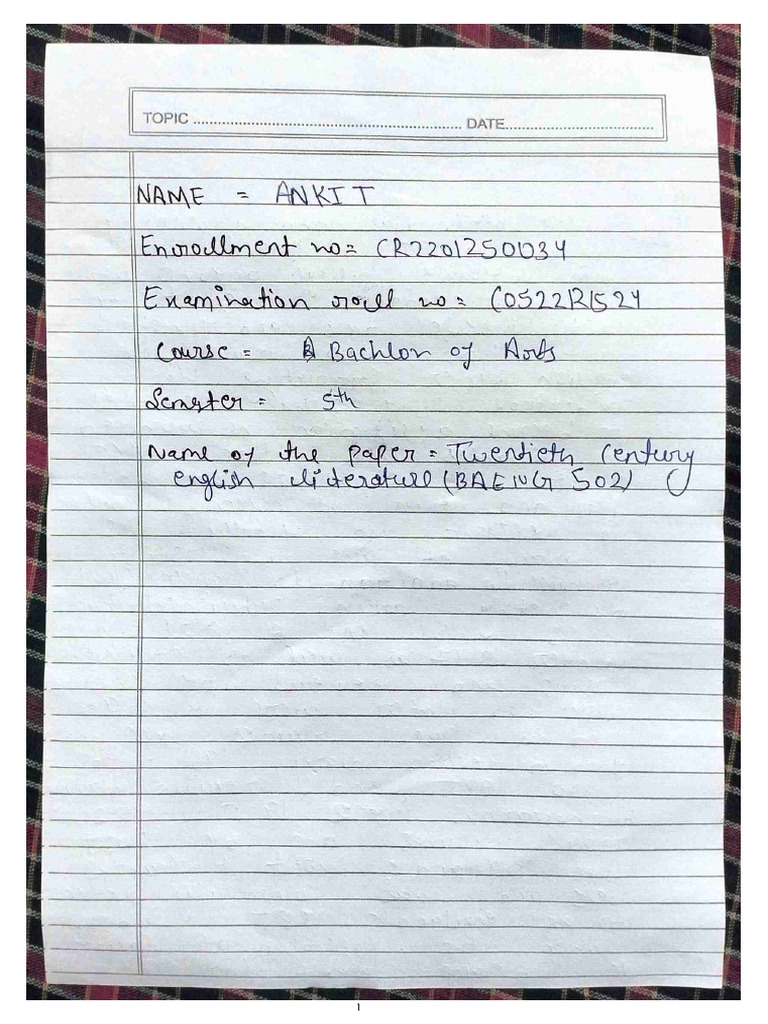 TOPIC ................................................................ DATE...................................
NAME = ANKIT
Enrollment no= CR2201250034
Examination roll no= C0522R1524
Course = Bachlor of Arts
Semster = 5th
Name of the paper = Twentieth Century
english literature (BAENG 502)
1